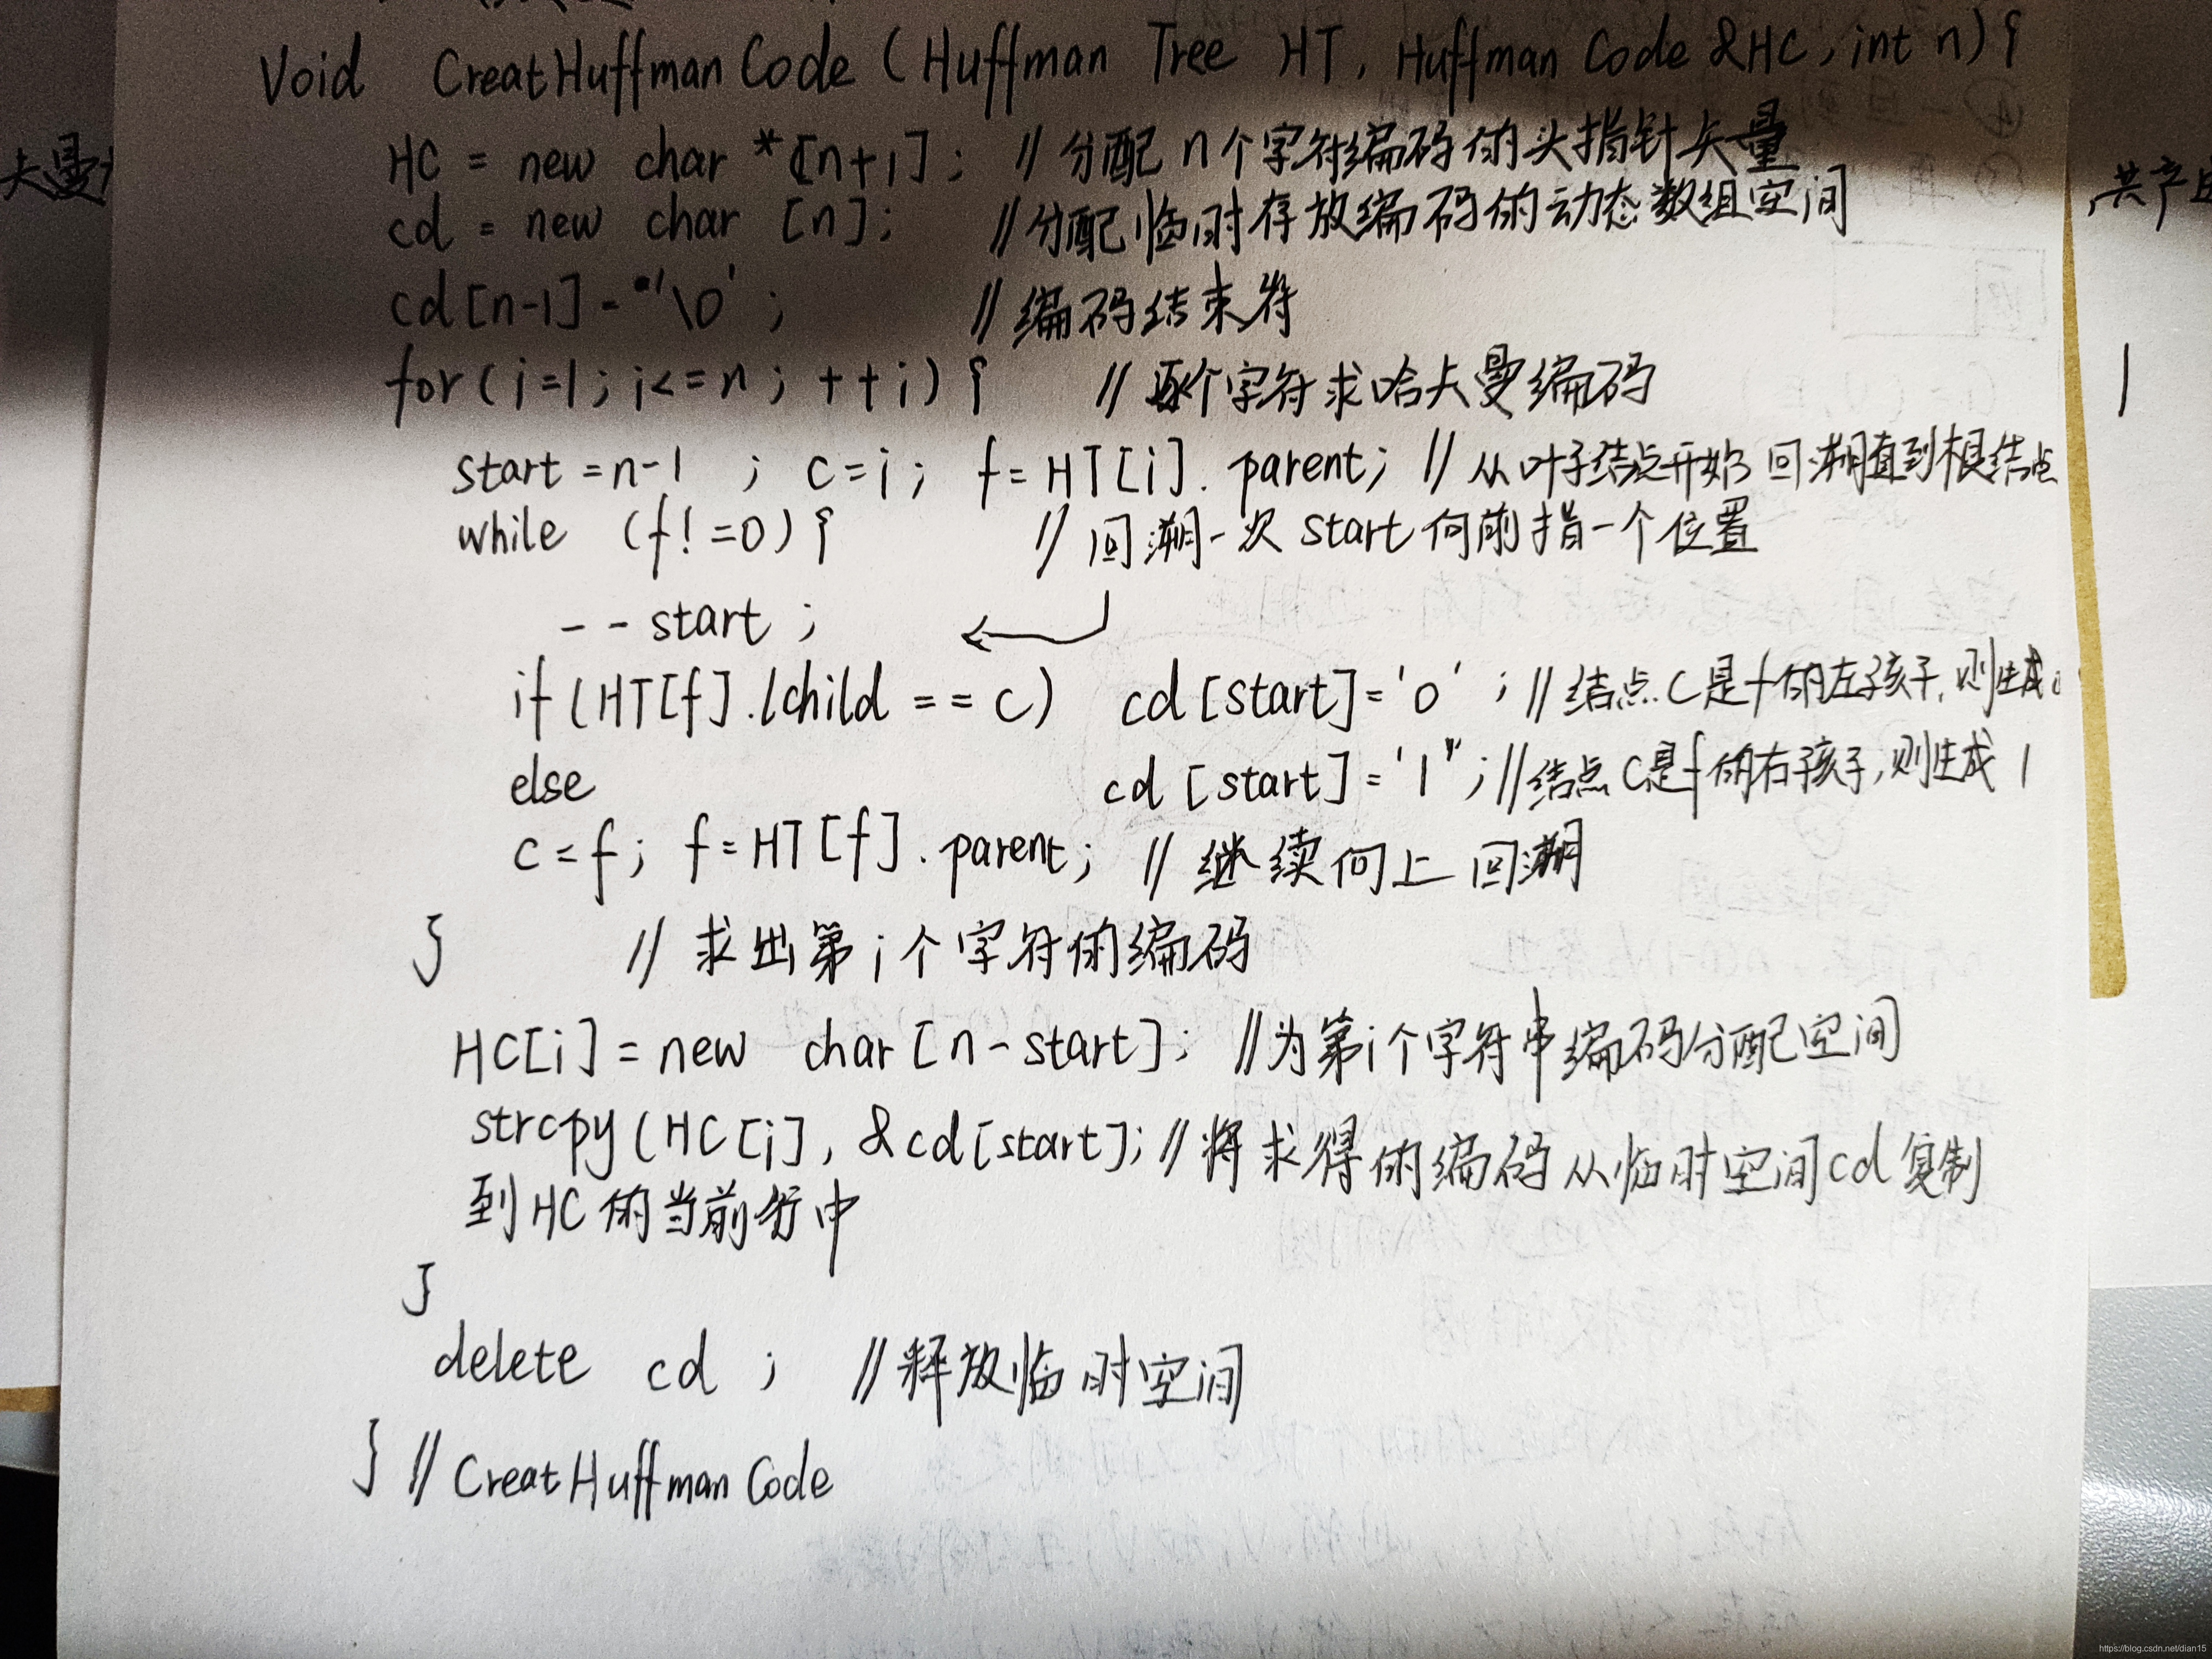 Void CreatHuffman Code (Huffman Tree HT, Huffman Code &HC, int n){
HC = new char *[n+1]; // 分配 n个字符编码的头指针矢量
cd = new char [n]; //分配临时存放编码的动态数组空间
cd[n-1]='\0'; //编码结束符
for(i=1;i<=n;++i){ //逐个字符求哈夫曼编码
start=n-1 ; c=i; f=HT[i].parent; // 从叶子结点开始回溯直到根结点
while (f!=0){ // 回溯一次 start向前指一个位置
--start ;
if(HT[f].lchild == c) cd[start]='0' ; //结点c是f的左孩子,则生成0
else cd[start]='1";//结点c是f的右孩子,则生成1
c=f; f=HT[f].parent; // 继续向上回溯
} // 求出第i个字符的编码
HC[i]=new char[n-start]; //为第i个字符串编码分配空间
strcpy(HC[i], &cd[start]; //将求得的编码从临时空间cd复制
到HC的当前行中
}
delete cd ; //释放临时空间
} // CreatHuffman Code
夫曼
共产
https://blog.csdn.net/dian15